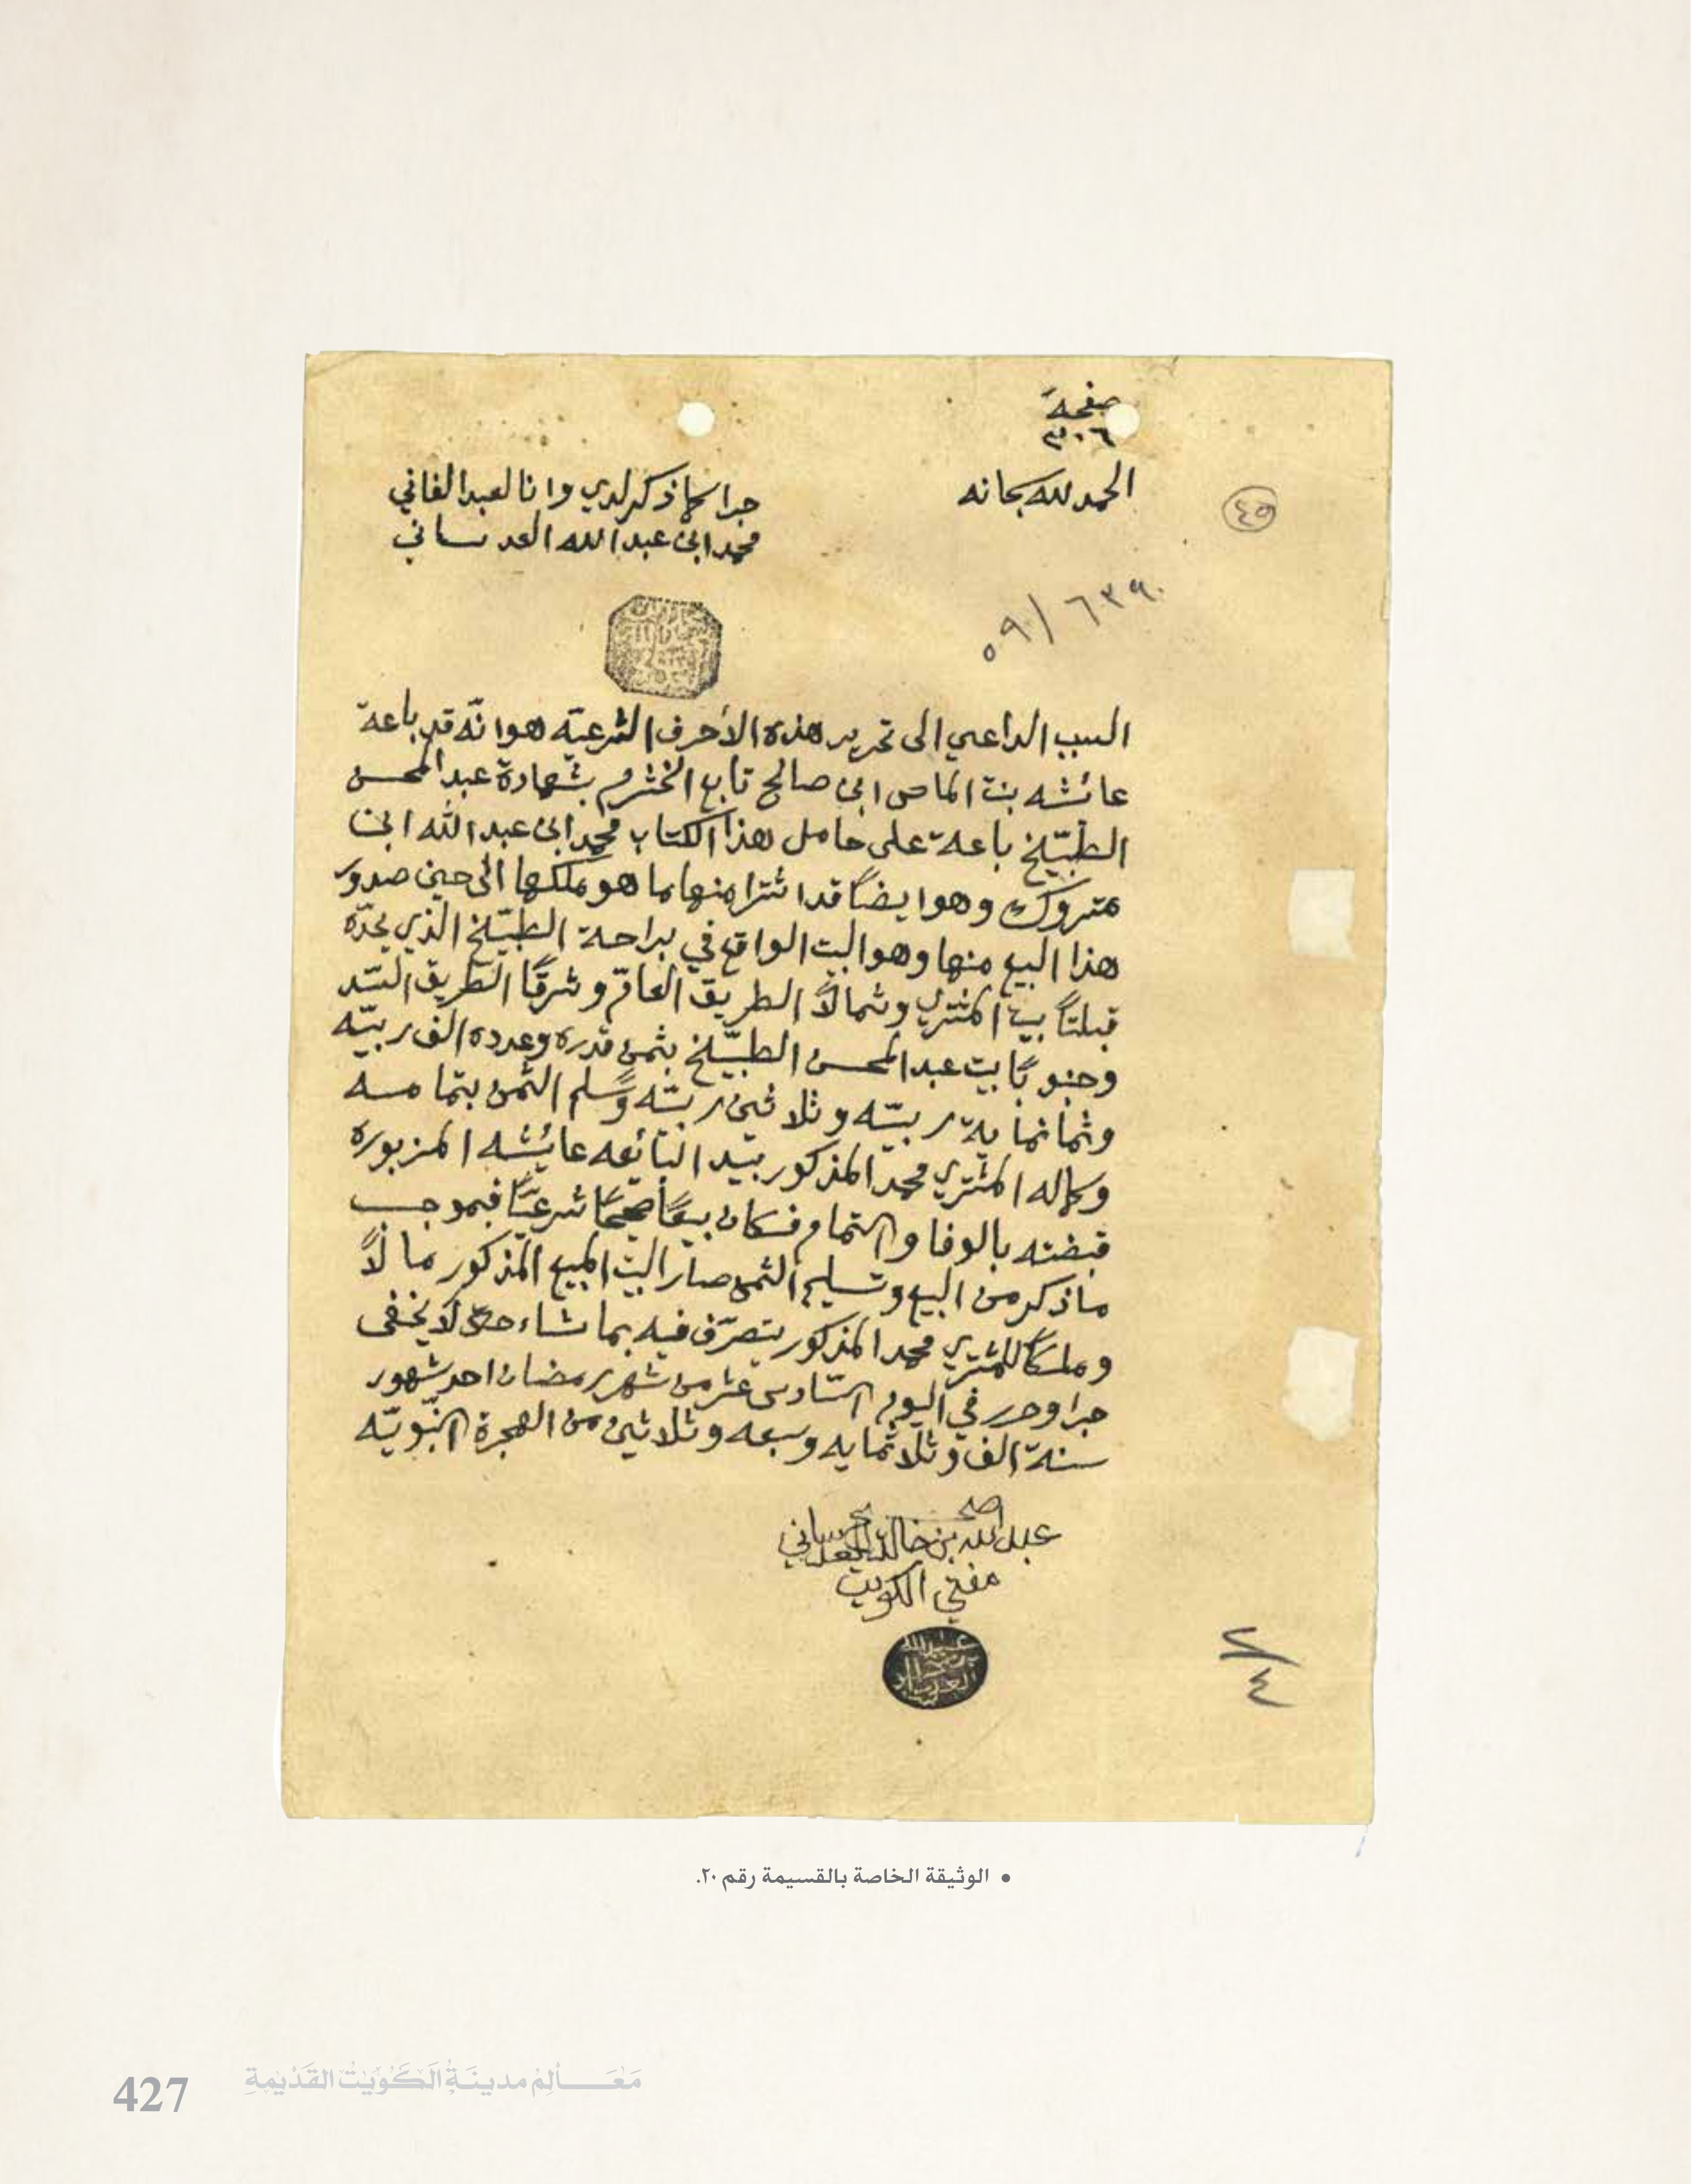 صفحة
٣٠٦
الحمد لله سبحانه
جرا كما ذكر لدي وانا العبد الفاني
محمد ابن عبدالله العدساني
٤٥
٥٩/٦٣٩٠
السبب الداعي الى تحرير هذه الأحرف الشرعيّه هو انّه قد باعة
عائشه بنة الماص ابن صالح تابع الخثرم بشهادة عبد المحسن
الطبّيخ باعة على حامل هذا الكتاب محمد ابن عبدالله ابن
متروك وهو ايضاً قد اشترا منها ما هو ملكها الى حين صدور
هذا البيع منها وهو البيت الواقع في براحة الطبّيخ الذي يحدّه
قبلتاً بيت المشتري وشمالاً الطريق العامّ وشرقاً الطريق السّد
وجنوباً بيت عبد المحسن الطبّيخ بثمن قدره وعدده الف ربيّه
وثمانماية ربيّه وثلاثين ربيّه وسلم الثمن بتمامه
وكماله المشتري محمد المذكور بيد البائعه عائشه المزبوره
قبضته بالوفا والتمام فكان بيعاً صحيحاً شرعيّاً فبموجب
ماذكر من البيع وتسليم الثمن صار البيت المبيع المذكور مالاً
وملكاً للمشتري محمد المذكور يتصرّف فيه بما شاء حتى لا يخفى
جرا وحرر في اليوم السّادس عشر من شهر رمضان احد شهور
سنة الف وثلاثمايه وسبعه وثلاثين من الهجرة النّبويّه
صح
عبدالله بن خالد العدساني
مفتي الكويت
عبدالله
بن خالد
العدساني
٧/٤
• الوثيقة الخاصة بالقسيمة رقم ٢٠.
427 مَعَالِم مدينَة الكُوَيت القَدْيمةِ